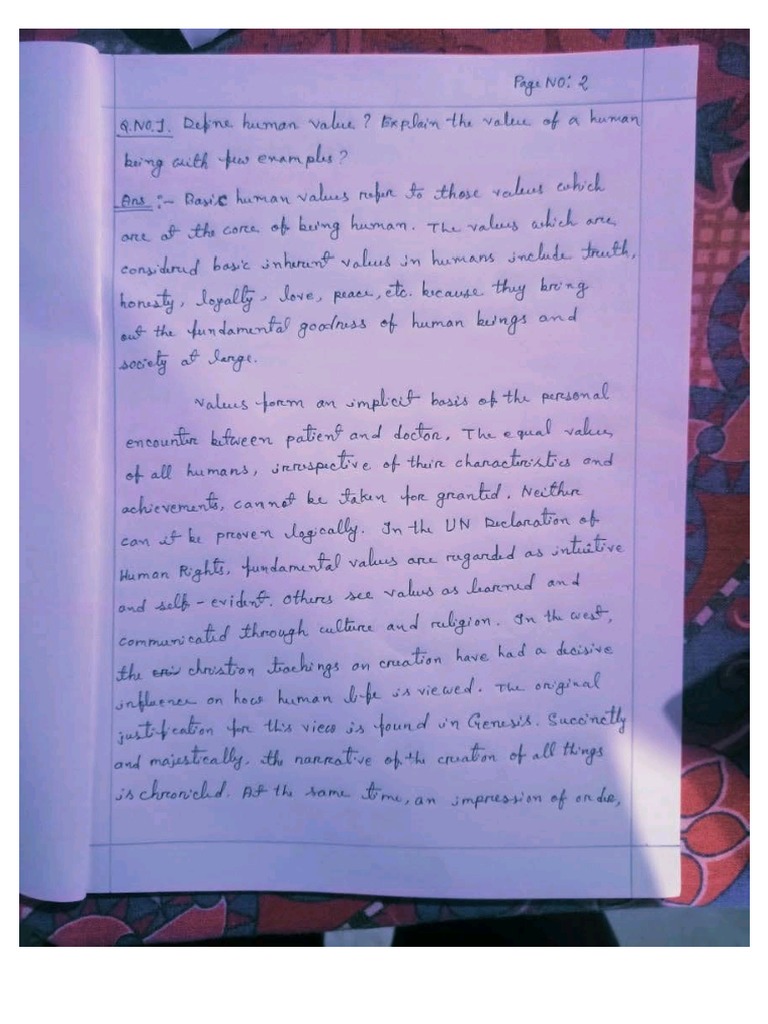 Page NO: 2
Q.NO.1. Define human value? Explain the value of a human
being with few examples?
Ans :- Basic human values refer to those values which
are at the core of being human. The values which are
considered basic inherent values in humans include truth,
honesty, loyalty, love, peace, etc. because they bring
out the fundamental goodness of human beings and
society at large.
Values form an implicit basis of the personal
encounter between patient and doctor. The equal value
of all humans, irrespective of their characteristics and
achievements, cannot be taken for granted. Neither
can it be proven logically. In the UN Declaration of
Human Rights, fundamental values are regarded as intuitive
and self-evident. Others see values as learned and
communicated through culture and religion. In the west,
the christian teachings on creation have had a decisive
influence on how human life is viewed. The original
justification for this view is found in Genesis. Succinctly
and majestically, the narrative of the creation of all things
is chronicled. At the same time, an impression of order,